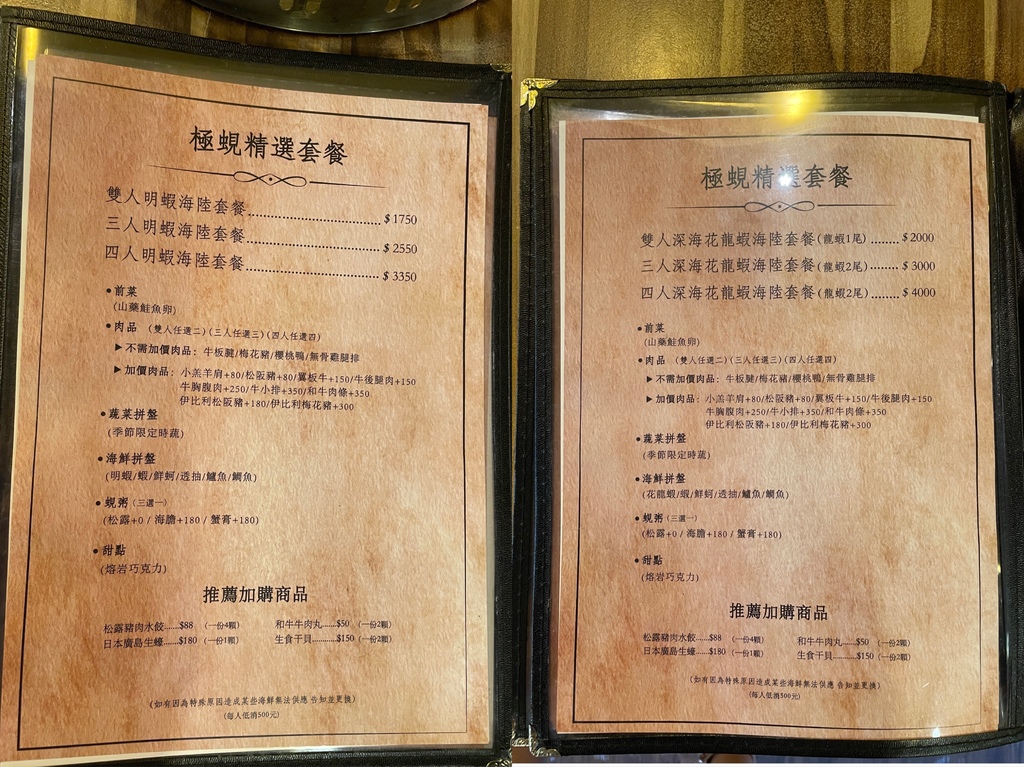 極蜆精選套餐
雙人明蝦海陸套餐 $1750
三人明蝦海陸套餐 $2550
四人明蝦海陸套餐 $3350
•前菜
(山藥鮭魚卵)
•肉品 (雙人任選二)(三人任選三)(四人任選四)
▶不需加價肉品：牛板腱/梅花豬/櫻桃鴨/無骨雞腿排
▶加價肉品：小羔羊肩+80/松阪豬+80/翼板牛+150/牛後腿肉+150
牛胸腹肉+250/牛小排+350/和牛肉條+350
伊比利松阪豬+180/伊比利梅花豬+300
•蔬菜拼盤
(季節限定時蔬)
•海鮮拼盤
(明蝦/蝦/鮮蚵/透抽/鱸魚/鯛魚)
•蜆粥(三選一)
(松露+0 / 海膽+180 / 蟹膏+180)
•甜點
(熔岩巧克力)
推薦加購商品
松露豬肉水餃......$88 (一份4顆) 和牛牛肉丸......$50 (一份2顆)
日本廣島生蠔......$180 (一份1顆) 生食干貝............$150 (一份2顆)
(如有因為特殊原因造成某些海鮮無法供應 告知並更換)
(每人低消500元)
極蜆精選套餐
雙人深海花龍蝦海陸套餐(龍蝦1尾) ....... $2000
三人深海花龍蝦海陸套餐(龍蝦2尾) ....... $3000
四人深海花龍蝦海陸套餐(龍蝦2尾) ....... $4000
•前菜
(山藥鮭魚卵)
•肉品 (雙人任選二)(三人任選三)(四人任選四)
▶不需加價肉品：牛板腱/梅花豬/櫻桃鴨/無骨雞腿排
▶加價肉品：小羔羊肩+80/松阪豬+80/翼板牛+150/牛後腿肉+150
牛胸腹肉+250/牛小排+350/和牛肉條+350
伊比利松阪豬+180/伊比利梅花豬+300
•蔬菜拼盤
(季節限定時蔬)
•海鮮拼盤
(花龍蝦/蝦/鮮蚵/透抽/鱸魚/鯛魚)
•蜆粥(三選一)
(松露+0 / 海膽+180 / 蟹膏+180)
•甜點
(熔岩巧克力)
推薦加購商品
松露豬肉水餃......$88 (一份4顆) 和牛牛肉丸......$50 (一份2顆)
日本廣島生蠔......$180 (一份1顆) 生食干貝............$150 (一份2顆)
(如有因為特殊原因造成某些海鮮無法供應 告知並更換)
(每人低消500元)